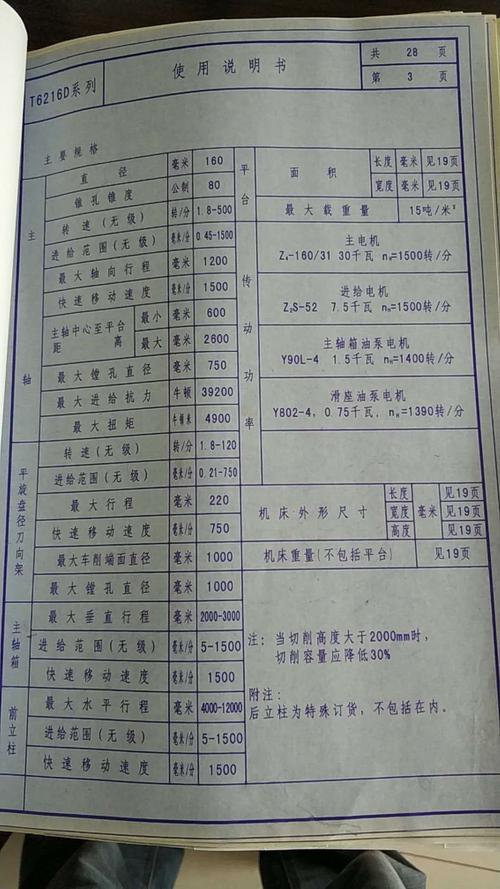 T6216D系列 使用说明书 共 28 页
第 3 页
主要规格
主轴 直径 毫米 160
锥孔锥度 公制 80
转速(无级) 转/分 1.8-500
进给范围(无级) 毫米/分 0.45-1500
最大轴向行程 毫米 1200
快速移动速度 毫米/分 1500
主轴中心至平台距高 最小 毫米 600
最大 毫米 2600
最大镗孔直径 毫米 750
最大进给抗力 牛顿 39200
最大扭矩 牛顿米 4900
平旋盘径刀向架 转速(无级) 转/分 1.8-120
进给范围(无级) 毫米/分 0.21-750
最大行程 毫米 220
快速移动速度 毫米/分 750
最大车削端面直径 毫米 1000
最大镗孔直径 毫米 1000
主轴箱 最大垂直行程 毫米 2000-3000
进给范围(无级) 毫米/分 5-1500
快速移动速度 毫米/分 1500
前立柱 最大水平行程 毫米 4000-12000
进给范围(无级) 毫米/分 5-1500
快速移动速度 毫米/分 1500
平台 面积 长度 毫米 见19页
宽度 毫米 见19页
最大载重量 15吨/米²
传动功率 主电机
Z₄-160/31 30千瓦 nₙ=1500转/分
进给电机
Z₂S-52 7.5千瓦 nₙ=1500转/分
主轴箱油泵电机
Y90L-4 1.5千瓦 nₙ=1400转/分
滑座油泵电机
Y802-4, 0.75千瓦, nₙ=1390转/分
机床外形尺寸 长度 毫米 见19页
宽度 见19页
高度 见19页
机床重量(不包括平台) 见19页
注: 当切削高度大于2000mm时,
切削容量应降低30%
附注:
后立柱为特殊订货, 不包括在内。